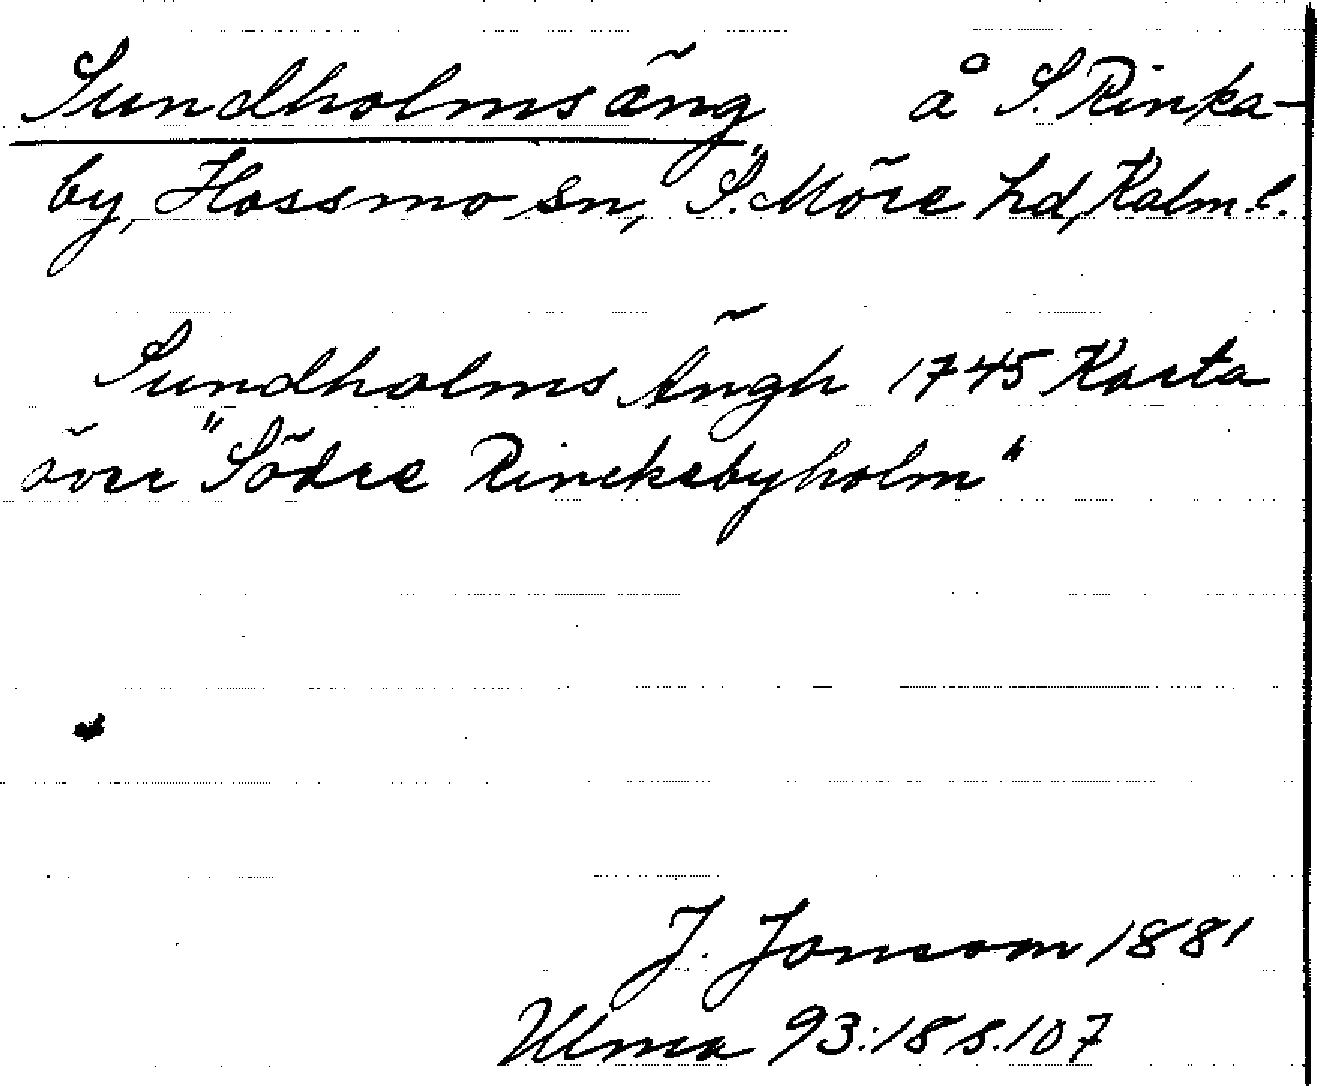 Sundholmsäng å S. Rinka-
by, Hossmo sn, S. Möre hd, Kalm. l.
Sundholms Ängh 1745 Karta
över "Södre Rinckebyholm"
J. Jonsson 1881
Ulma 93:18 s. 107